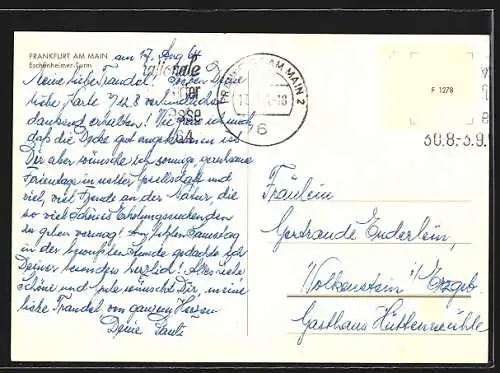 FRANKFURT AM MAIN
Eschenheimer-Turm
am 17. Aug 64
Meine liebe Traudel! Soeben Deine
liebe Karte verbindlichst
dankend erhalten! Wie freue ich mich
daß die Decke gut angekommen ist
Dir aber wünsche ich sonnige, geruhsame
Ferientage in netter Gesellschaft und
viel, viel Freude an der Natur, die
so viel Schönes Erholungssuchenden
zu geben vermag! Am letzten Samstag
in der bewußten Stunde gedachte ich
Deiner besonders herzlich! Alles viele
Schöne und Gute wünscht Dir, meine
liebe Traudel von ganzem Herzen
Deine
FRANKFURT AM MAIN 2
F 1278
30.8.-3.9.
Fräulein
Gertraude Enderlein,
Wolkenstein i/Erzgeb.
Gasthaus Hüttenmühle